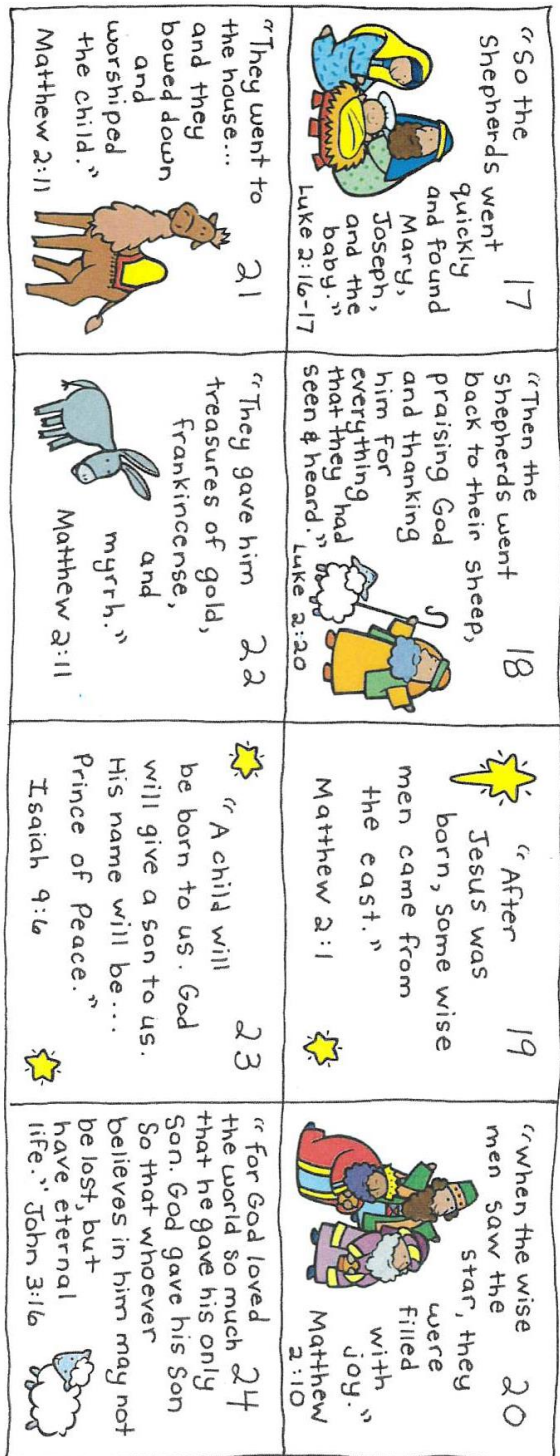 17
"So the
Shepherds went
quickly
and found
Mary,
Joseph,
and the
baby."
Luke 2:16-17
18
"Then the
shepherds went
back to their sheep,
praising God
and thanking
him for
everything
that they had
seen & heard."
Luke 2:20
19
"After
Jesus was
born, some wise
men came from
the east."
Matthew 2:1
20
"When the wise
men saw the
star, they
were
filled
with
joy."
Matthew
2:10
21
"They went to
the house...
and they
bowed down
and
worshiped
the child."
Matthew 2:11
22
"They gave him
treasures of gold,
frankincense,
and
myrrh."
Matthew 2:11
23
"A child will
be born to us. God
will give a son to us.
His name will be...
Prince of Peace."
Isaiah 9:6
"for God loved
the world so much 24
that he gave his only
Son. God gave his Son
So that whoever
believes in him may not
be lost, but
have eternal
life." John 3:16